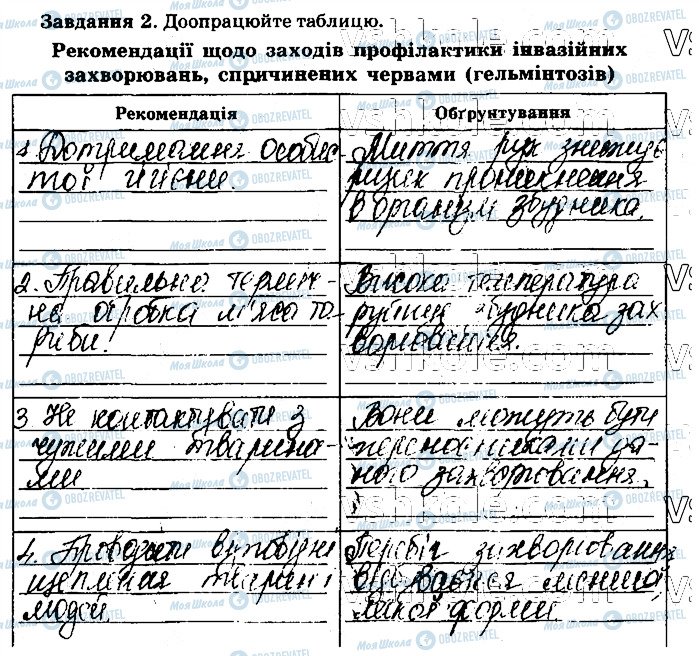 Завдання 2. Доопрацюйте таблицю.
Рекомендації щодо заходів профілактики інвазійних
захворювань, спричинених червами (гельмінтозів)
Рекомендація
Обґрунтування
1. Дотримання особис-
тої гігієни.
Миття рук знижує
ризик проникнення
в організм збудника.
2. Правильна терміч-
на обробка м'яса та
риби.
Висока температура
збудника зах
ворювання.
3 Не контактувати з
чужими тварина-
ми
Вони можуть бути
переносниками
ного захворювання.
4. Проводити
щеплення тварин і
людей.
Перебіг захворювання
відбувається
формі.